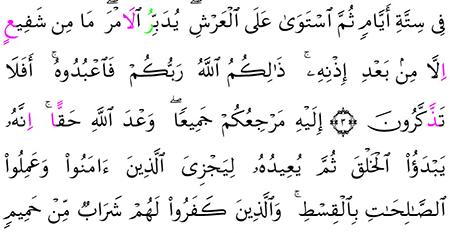 فِى سِتَّةِ أَيَّامٍ ثُمَّ ٱسْتَوَىٰ عَلَى ٱلْعَرْشِ ۖ يُدَبِّرُ ٱلَامْرَ ۖ مَا مِن شَفِيعٍ
اِلَّا مِنۢ بَعْدِ إِذْنِهِۦ ۚ ذَٰلِكُمُ ٱللَّهُ رَبُّكُمْ فَٱعْبُدُوهُ ۚ أَفَلَا
تَذَّكَّرُونَ ﴿٣﴾ إِلَيْهِ مَرْجِعُكُمْ جَمِيعًا ۖ وَعْدَ ٱللَّهِ حَقًّا ۚ اِنَّهُۥ
يَبْدَؤُا۟ ٱلْخَلْقَ ثُمَّ يُعِيدُهُۥ لِيَجْزِىَ ٱلَّذِينَ ءَامَنُوا۟ وَعَمِلُوا۟
ٱلصَّـٰلِحَـٰتِ بِٱلْقِسْطِ ۚ وَٱلَّذِينَ كَفَرُوا۟ لَهُمْ شَرَابٌ مِّنْ حَمِيمٍ